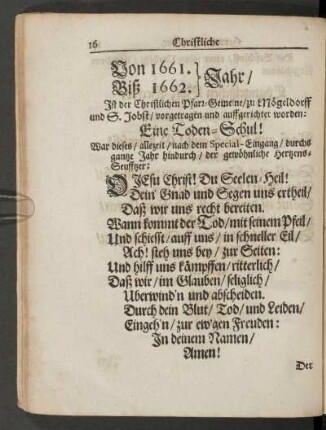 16 Christliche
Von 1661.
Biß 1662. } Jahr /
Ist der Christlichen Pfarr-Gemeine / zu Mögeldorff
und S. Jobst / vorgetragen und auffgerichtet worden:
Eine Toden-Schul!
War dieses / allezeit / nach dem Special-Eingang / durchs
gantze Jahr hindurch / der gewöhnliche Hertzens-
Seufftzer:
O JEsu Christ! Du Seelen-Heil!
Dein Gnad und Segen uns ertheil /
Daß wir uns recht bereiten.
Wann kommt der Tod / mit seinem Pfeil /
Und schiesst / auff uns / in schneller Eil /
Ach! steh uns bey / zur Seiten:
Und hilff uns kämpffen / ritterlich /
Daß wir / im Glauben / seliglich /
Uberwind'n und abscheiden.
Durch dein Blut / Tod / und Leiden /
Eingeh'n / zur ew'gen Freuden:
In deinem Namen /
Amen!
Der